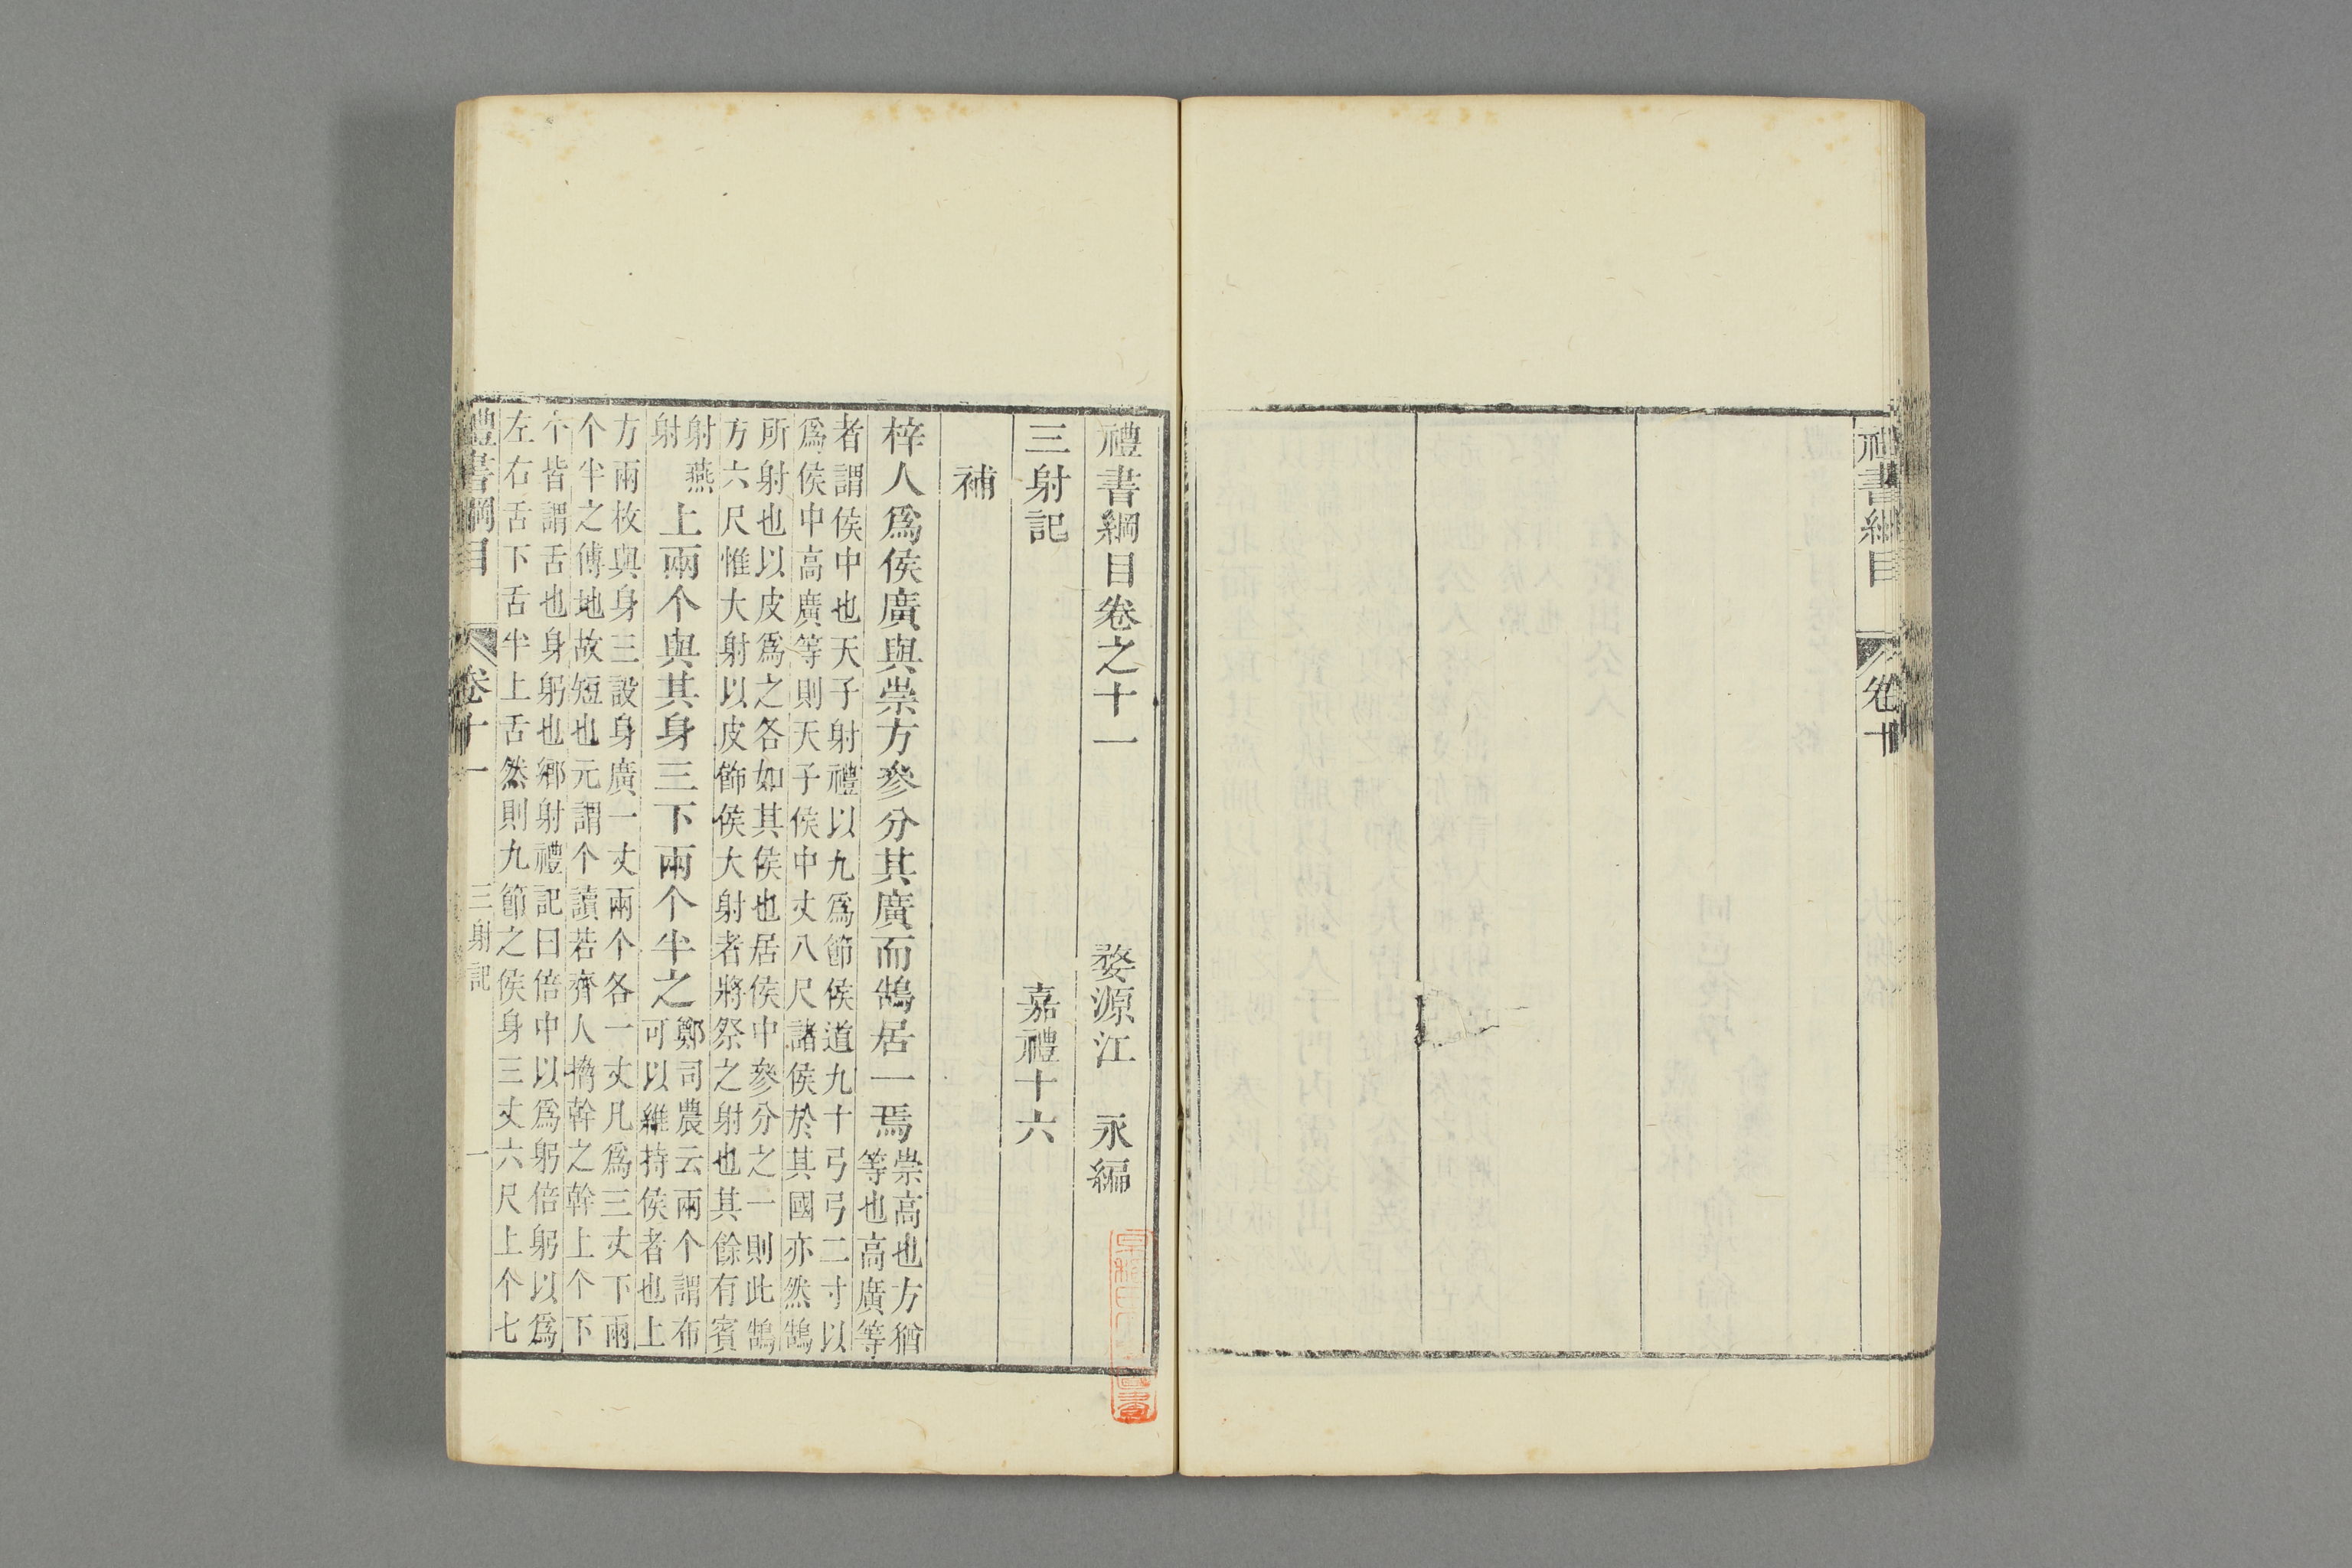 禮書綱目
卷十
禮書綱目卷之十一
婺源江 永編
三射記
嘉禮十六
補
梓人爲侯廣與崇方參分其廣而鵠居一焉
崇高也方猶
等也高廣等
者謂侯中也天子射禮以九爲節侯道九十弓弓二寸以
爲侯中高廣等則天子侯中丈八尺諸侯於其國亦然鵠
所射也以皮爲之各如其侯也居侯中參分之一則此鵠
方六尺惟大射以皮飾侯大射者將祭之射也其餘有賓
射燕
射
上兩个與其身三下兩个半之
鄭司農云兩个謂布
可以維持侯者也上
方兩枚與身三設身廣一丈兩个各一丈凡爲三丈下兩
个半之傅地故短也元謂个讀若齊人搚幹之幹上个下
个皆謂舌也身躬也鄉射禮記曰倍中以爲躬倍躬以爲
左右舌下舌半上舌然則九節之侯身三丈六尺上个七
禮書綱目
卷十一
三射記
一